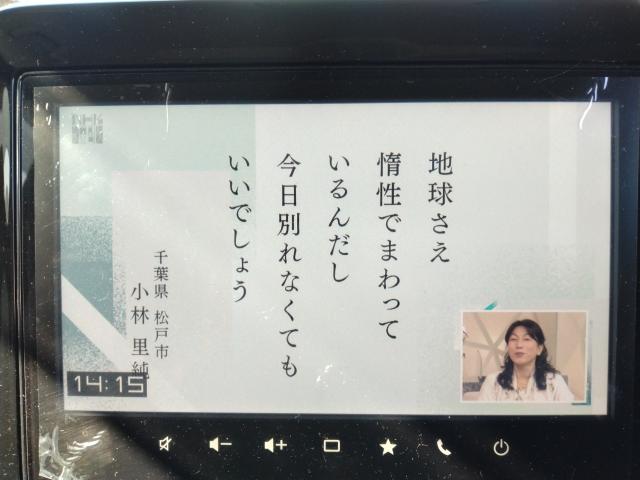 地球さえ
惰性でまわって
いるんだし
今日別れなくても
いいでしょう
千葉県 松戸市
小林 里純
14:15